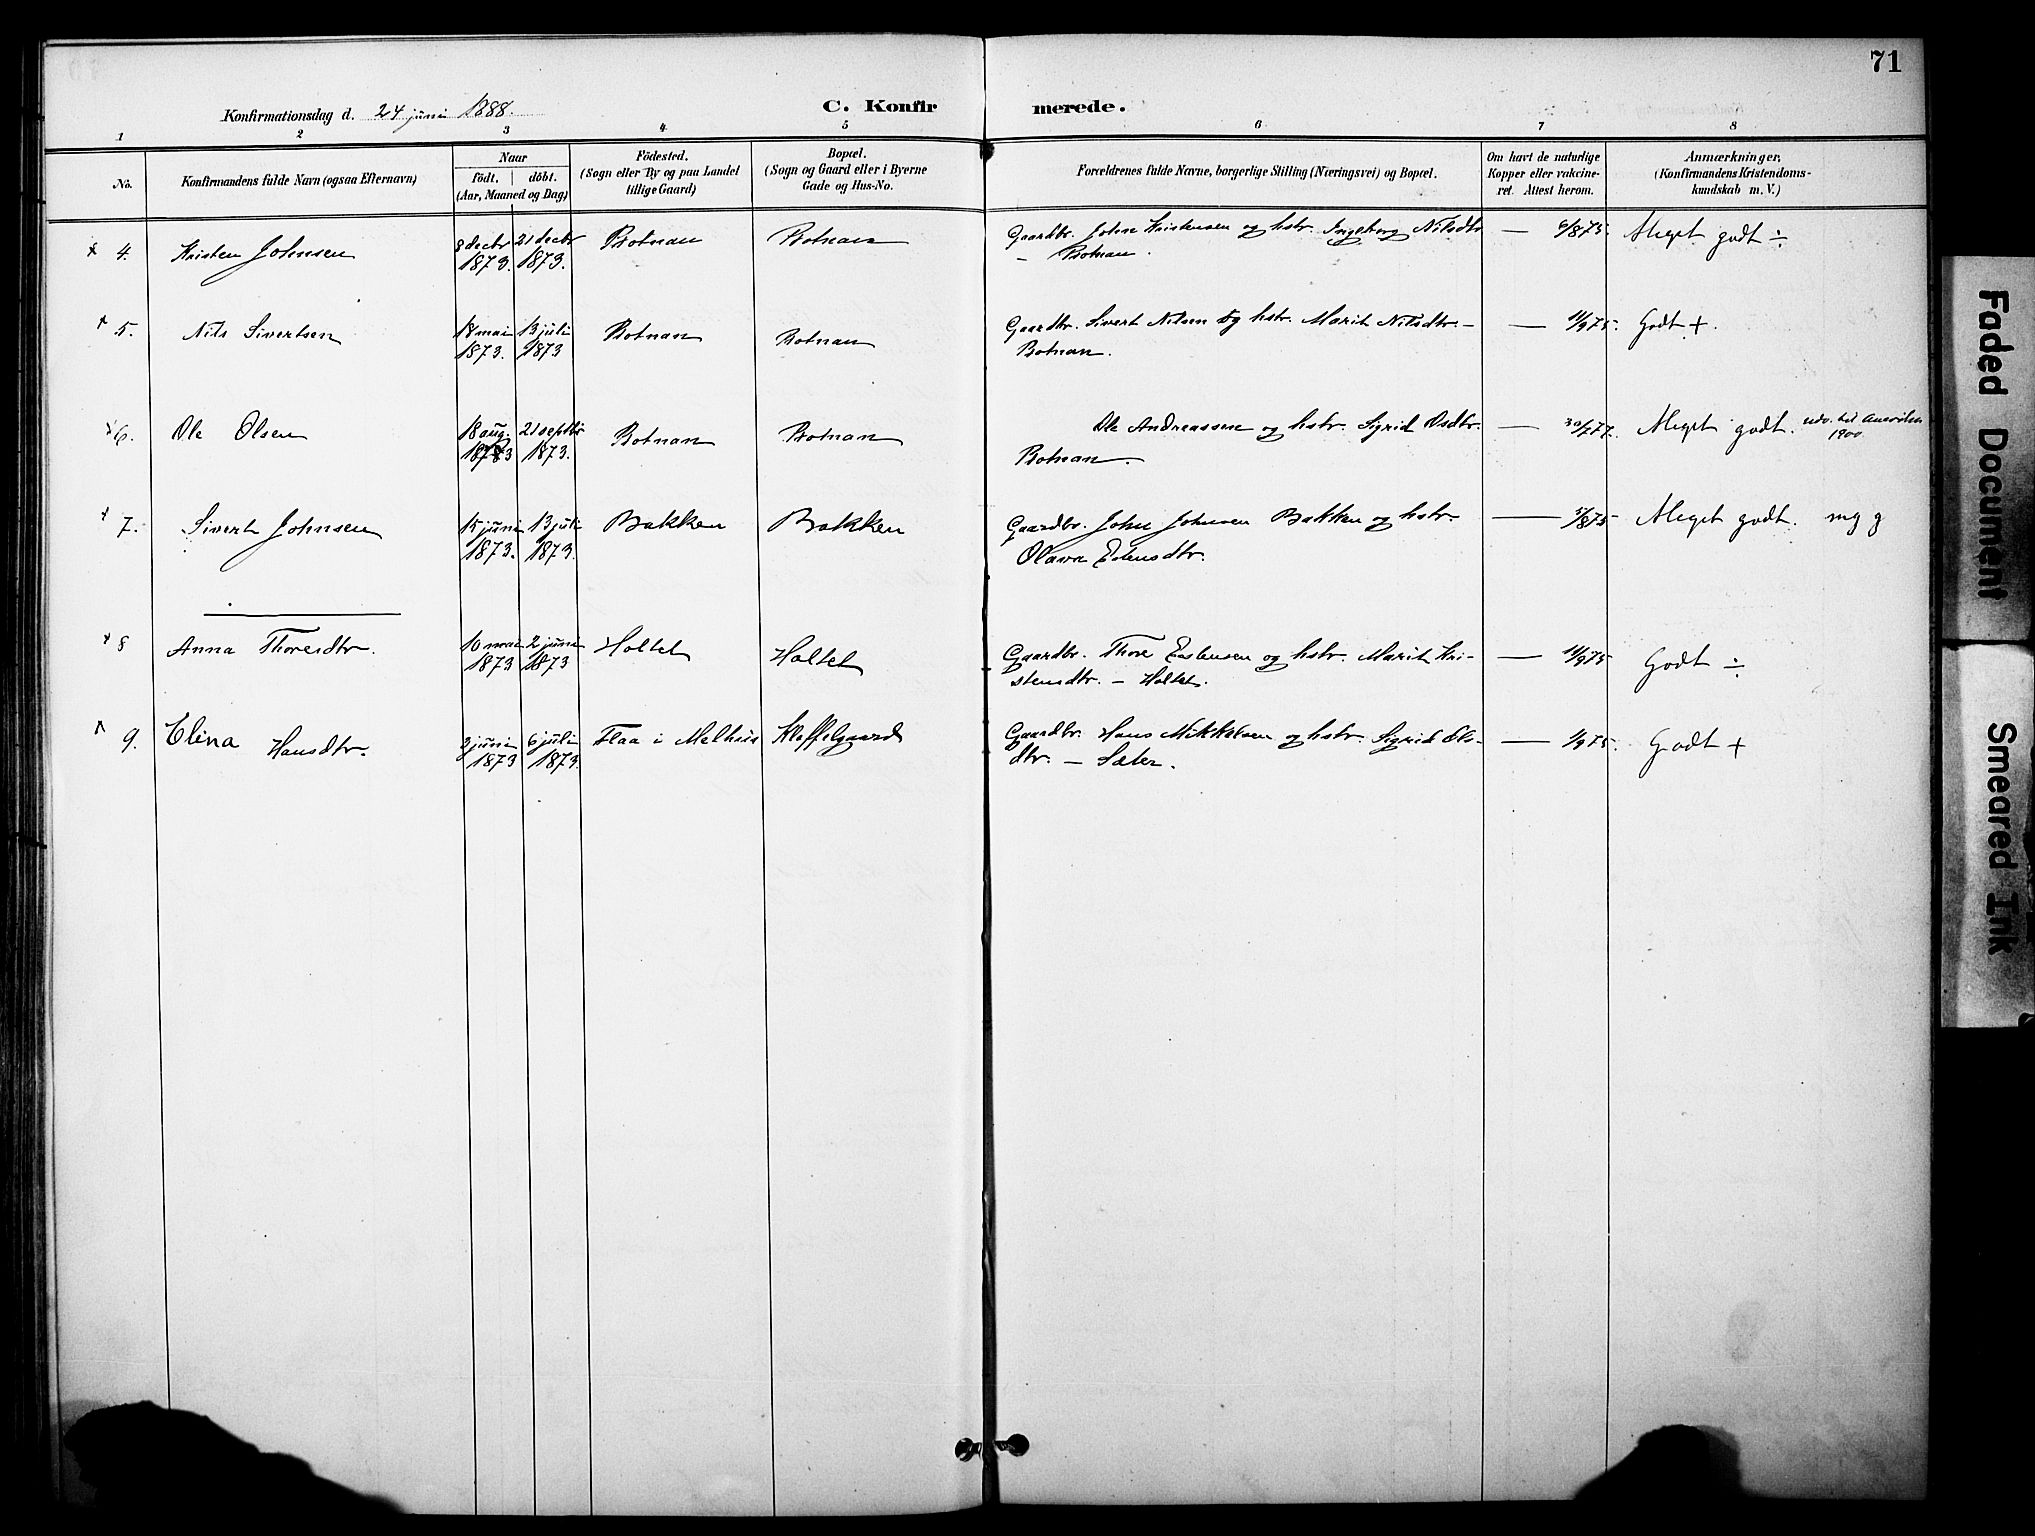 71
Konfirmationsdag d. 24 juni 1888.
C. Konfirmerede.
1 2 3 4 5 6 7 8
No.
Konfirmandens fulde Navn (ogsaa Efternavn)
Naar
födt. döbt.
(Aar, Maaned og Dag)
Födested.
(Sogn eller By og paa Landet
tillige Gaard)
Bopæl.
(Sogn og Gaard eller i Byerne
Gade og Hus-No.
Forældrenes fulde Navne, borgerlige Stilling (Næringsvei) og Bopæl.
Om havt de naturlige
Kopper eller vakcine-
ret. Attest herom.
Anmærkninger.
(Konfirmandens Kristendoms-
kundskab m. V.)
4. Kristen Johnsen 8 decbr 1873. 21 decbr 1873. Botnan Botnan Gaardbr. John Kristensen og hstr. Ingeborg Nilsdtr
– Botnan. — 6/875. Meget godt ÷
5. Nils Sivertsen 18 mai 1873. 13 juli 1873 Botnan Botnan Gaardbr. Sivert Nilsen og hstr. Marit Nilsdtr. –
Botnan. — 11/975. Godt +.
6. Ole Olsen 18 aug. 1873 21 septbr 1873. Botnan Botnan Ole Andreassen og hstr. Sigrid Olsdtr.
Botnan. — 30/777. Meget godt. udv. til Amerika
1900.
7. Sivert Johnsen 15 juni 1873. 13 juli 1873. Bakken Bakken Gaardbr. John Johnsen Bakken og hstr.
Olava Estensdtr. — /875 Meget godt. mg g
8 Anna Thoresdtr. 10 mai 1873 2 juni 1873 Holtet Holtet Gaardbr. Thore Estensen og hstr. Marit Kri-
stensdtr. – Holtet. — 11/975 Godt ÷
9. Elina Hansdtr. 2 juni 1873 6 juli 1873. Flaa i Melhus Kleffelgaard Gaardbr. Hans Mikkelsen og hstr. Sigrid Ols-
dtr. – Sæter. — 1/975. Godt +
Faded Document
Smeared Ink